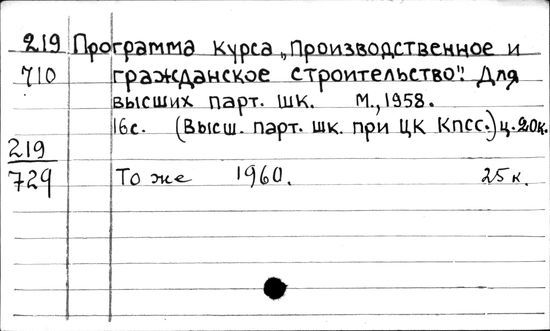 219 Программа курса „Производственное и
710 гражданское строительство". Для
высших парт. шк. М., 1958.
16с. (Высш. парт. шк. при ЦК Кпсс.) ц. 20к.
219
729 То же 1960. 25к.